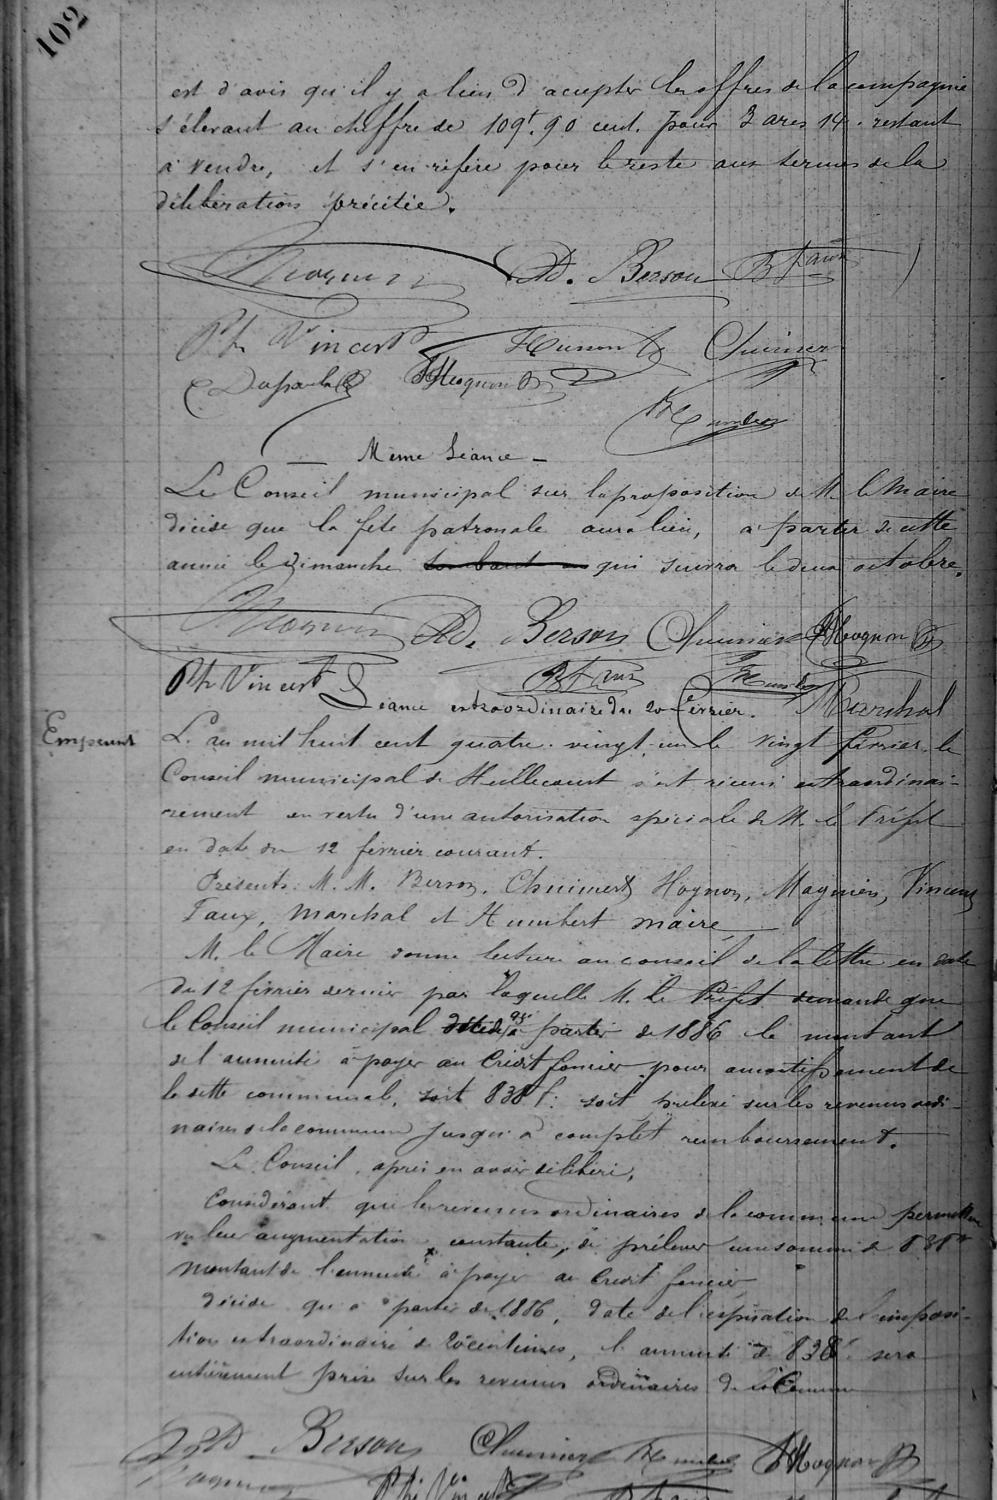 102
est d'avis qu'il y a lieu d'accepter les offres de la compagnie
s'élevant au chiffre de 109f,90 cent. pour 3 ares 14 c. restant
à vendre, et s'en réfère pour le reste aux termes de la
délibération précitée.
Magnien Ad. Berson
Ph Vincent Husson Chuinier
Hognon
Humbert
Même Séance -
Le Conseil municipal sur la proposition de M. le Maire
décide que la fête patronale aura lieu, à partir de cette
année le dimanche qui suivra le deux octobre.
Magnien Ad. Berson Chuinier Hognon
Ph Vincent Humbert Marchal
Séance extraordinaire du 20 février.
Emprunt
L'an mil huit cent quatre-vingt-un le vingt février le
Conseil municipal de Huillécourt s'est réuni extraordinai-
rement en vertu d'une autorisation spéciale de M. le Préfet
en date du 12 février courant.
Présents: M. M. Berson, Hognon, Magnien, Vincent
Faux, Marchal et Humbert maire
M. le Maire donne lecture au conseil de la lettre en date
du 12 février dernier par laquelle M. le Préfet demande que
le Conseil municipal décide qu'à partir de 1886 le montant
de l'annuité à payer au Crédit foncier pour amortissement de
la dette communale, soit 838f. soit prélevé sur les revenus ordi-
naires de la commune jusqu'à complet remboursement.
Le Conseil, après en avoir délibéré,
Considérant que les revenus ordinaires de la commune permettent
vu leur augmentation constante, de prélever une somme de 838f
montant de l'annuité à payer au Crédit foncier
décide qu'à partir de 1886, date de l'expiration de l'imposi-
tion extraordinaire de 20 centimes, l'annuité de 838f. sera
entièrement prise sur les revenus ordinaires de la Commune
Berson Chuinier Humbert Hognon
Magnien Ph. Vincent